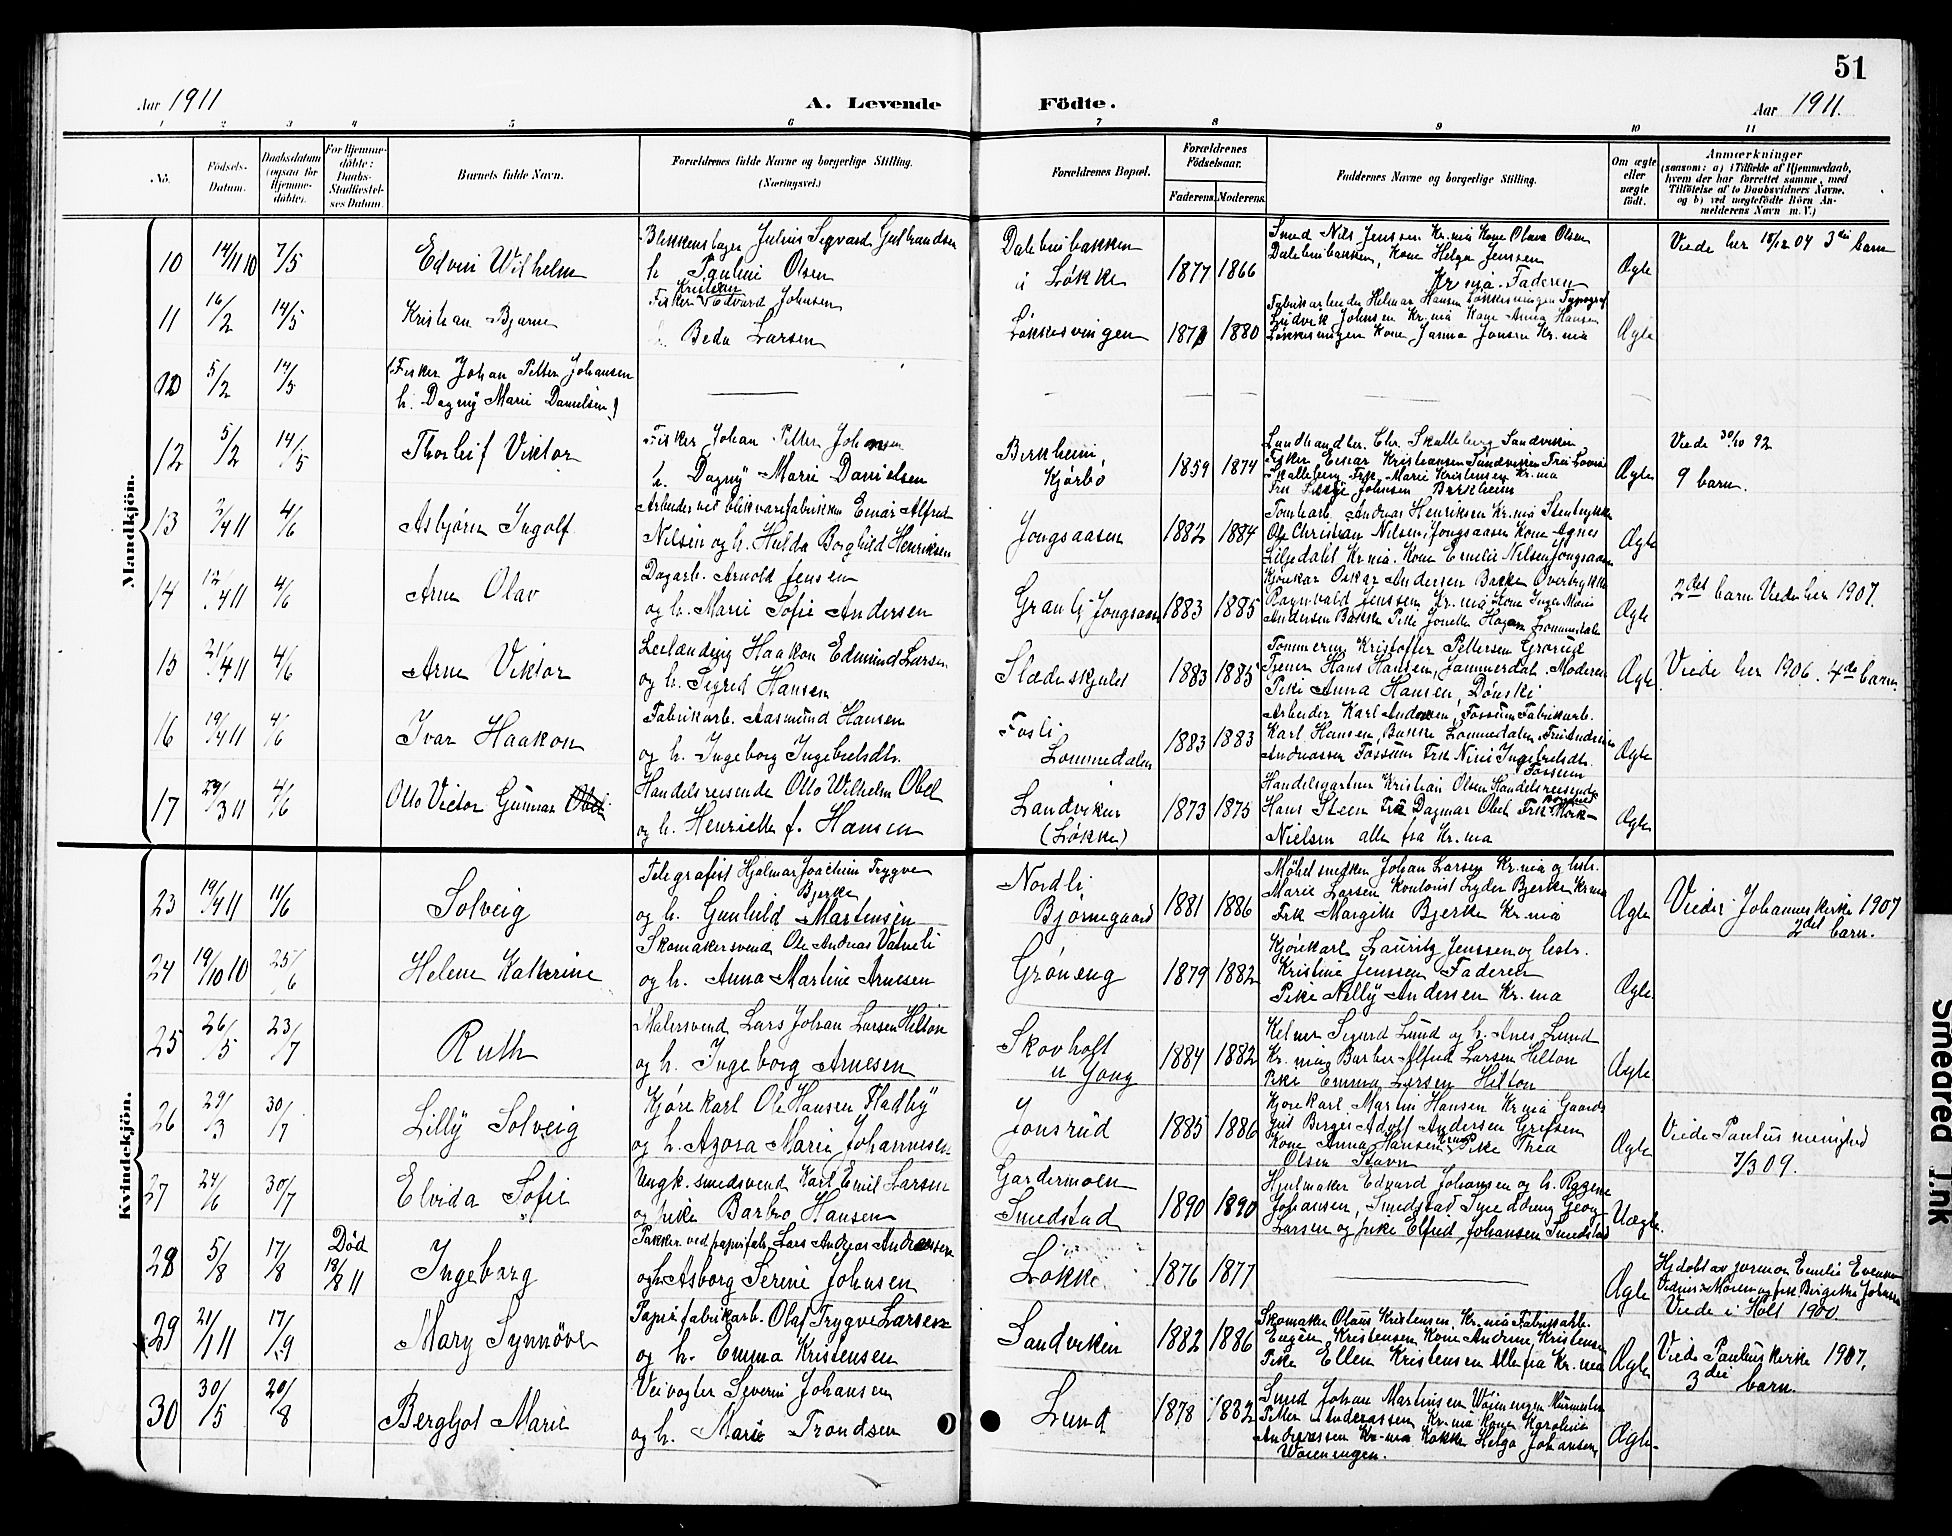 51
Aar 1911
A. Levende Födte.
Aar 1911.
1 2 3 4 5 6 7 8 9 10 11
No.
Födsels-Datum.
Daabsdatum (ogsaa for Hjemme-döbte).
For Hjemme-döbte: Daabs-Stadfæstel-ses Datum.
Barnets fulde Navn.
Forældrenes fulde Navne og borgerlige Stilling.
(Næringsvei.)
Forældrenes Bopæl.
Forældrenes Födselsaar.
Faderens. Moderens.
Faddernes Navne og borgerlige Stilling.
Om ægte eller uægte födt.
Anmærkninger
(saasom: a) i Tilfælde af Hjemmedaab,
hvem der har forrettet samme, med
Tilföielse af to Daabsvidners Navne,
og b) ved uægtefödte Börn An-
melderens Navn m. V.)
Mandkjön.
10 14/11 10 7/5 Edvin Wilhelm
Julius Sigvard Gulbrandsen
h. Pauline Olsen
Løkke
1877 1866
Smed Nils Jenssen Kr.nia Kone Olava Olsen
Kone Helga Jenssen
Kr.nia. Faderen
Ægte
Viede her 18/12 04 3die barn
11 16/2 14/5 Kristian Bjarne
Fisker Kristian Edvard Johnsen
Beda Larsen
Løkkesvingen
1880
Fabrikarbeider Helmar Hansen Løkkesvingen Typograf
Ludvik Johnsen Kr.nia Kone Anna Hansen
Løkkesvingen Kone Janna Jonsen Kr.nia
Ægte
5/2 14/5
(Fisker Johan Petter Johansen
h. Dagny Marie Danielsen)
12 5/2 14/5 Thorleif Viktor
Fisker Johan Petter Johansen
h. Dagny Marie Danielsen
Birkheim
Kjørbo
1859 1874
Landhandler Chr. Skalleberg Sandviken
Fisker Einar Kristiansen Sandviken Fru Lovise
Skalleberg Frk. Marie Kristensen Kr.nia
Johnsen Birkheim
Ægte
Viede 30/10 92
9 barn.
13 2/4 11 4/6 Asbjørn Ingolf
Arbeider ved blikvarefabrikken Einar Alfred
Nilsen og h. Hulda Borghild Henriksen
Jongsaasen
1882 1884
Tomtearb. Andreas Henriksen Kr.nia Stentrykker
Ole Christian Nilsen, Jongsaasen Kone Agnes
Liljedahl Kr.nia. Kone Emelie Nilsen Jongsaasen
Ægte
14 12/4 11 4/6 Arne Olav
Dagarb. Arnold Jensen
og h. Marie Sofie Andersen
Granli, Jongsaasen
1883 1885
Kjørekar Oskar Andersen Bakke Overtrykker
Ragnvald Jenssen Kr.nia Kone Inger Marie
Andersen Bakke Pike Jonette Hagen Lommedalen
Ægte
2det barn Viede her 1907.
15 21/4 11 4/6 Arne Viktor
Leilænding Haakon Edmund Larsen
og h. Sigrid Hansen
Slædeskjulet
1883 1885
Tømmerm. Kristoffer Pettersen Grorud
Tjener Hans Hansen, Jammerdal. Moderen
Pike Anna Hansen, Dønski
Ægte
Viede her 1906. 4de barn.
16 19/4 11 4/6 Ivar Haakon
Fabrikarb. Aasmund Hansen
og h. Ingeborg Ingebretsdtr.
Fosli
Lommedalen
1883 1883
Arbeider Karl Andersen, Fossum Fabrikarb.
Karl Hansen, Bakke Lommedalen,
Andreassen Fossum Frk Nini Ingebretsdt.
Fossum
Ægte
17 29/3 11 4/6 Otto Victor Gunnar Obel
Handelsreisende Otto Wilhelm Obel
og h. Henriette f. Hansen
Sandviken
(Løkke)
1873 1875
Handelsgartner Kristian Olsen Handelsreisende
Hans Steen Fru Dagmar Obel Frk Mørk-
Nielsen alle fra Kr.nia
Ægte
Kvindekjön.
23 19/4 11 11/6 Solveig
Telegrafist Hjalmar Joachim Trygve
Bjerke
og h. Gunhild Martensen
Nordli
Bjørnegaard
1881 1886
Møbelsnedker Johan Larsen Kr.nia og hstr.
Marie Larsen Kontorist Lyder Bjerke Kr.nia
Frk Margitte Bjerke Kr.nia
Ægte
Viede i Johannes kirke 1907
2det barn.
24 19/10 10 25/6 Helene Katherine
Skomakersvend Ole Andreas Vatneli
og h. Anna Martine Arnesen
Grøneng
1879 1882
Kjørekarl Lauritz Jenssen og hstr.
Kristine Jenssen Faderen
Pike Nelly Andersen Kr.nia
Ægte.
25 26/5 23/7 Ruth
Malersvend Lars Johan Larsen Hilton
og h. Ingeborg Arnesen
Skovholt
u Jong
1884 1882
Kelner Sigurd Lund og h. Lund
Kr.nia Barber Alfred Larsen Hilton
Pike Emma Larsen Hilton
Ægte
26 29/3 30/7 Lilly Solveig
Kjørekarl Ole Hansen Fladby
og h. Azora Marie Johannesen
Jonsrud
1885 1886
Kjørekarl Martin Hansen Kr.nia Gaards
Birger Adolf Andersen Grefsen
Kone Anna Hansen Pike Thea
Olsen Stavn
Ægte
Viede Paulus menighed
7/3 09.
27 24/6 30/7 Elvida Sofie
Ungk. smedsvend Karl Emil Larsen
og pike Barbro Hansen
Gardermoen
Smedstad
1890 1890
Hjulmaker Edvard Johansen og h. Ragna
Johansen, Smedstad Smeddreng Georg
Larsen og pike Elfrid Johansen Smedstad
Uægte.
28 5/8 17/8 Død 19/8 11 Ingeborg
Pakker ved papirfab. Lars Andreas Andreassen
og h. Asborg Serine Johnsen
Løkke
1876 1877
Ægte
Hjdøbt av jormor Emelie Evensen
Vidner: Moren og frk Bergithe Johnsen
Viede i Holt 1900.
29 21/1 11 17/9 Mary Synnøve
Papirfabrikarb. Olaf Trygve Larsen
og h. Emma Kristensen
Sandviken
1882 1886
Skomaker Olaus Kristensen, Kr.nia Fabrikarb.
Eugen Kristensen Kone Andrine Kristensen
Pike Ellen Kristensen Alle fra Kr.nia
Ægte
Viede Paulus kirke 1907.
3die barn.
30 30/5 20/8 Bergljot Marie
Veivogter Severin Johansen
og h. Marie Trondsen
Lund
1878 1882
Smed Johan Martinsen Wøienengen
Petter Andreassen Kr.nia Kone Karoline
Andreassen Kr.nia Kokke Helga Johansen,
Wøienengen.
Ægte
Smeared Ink